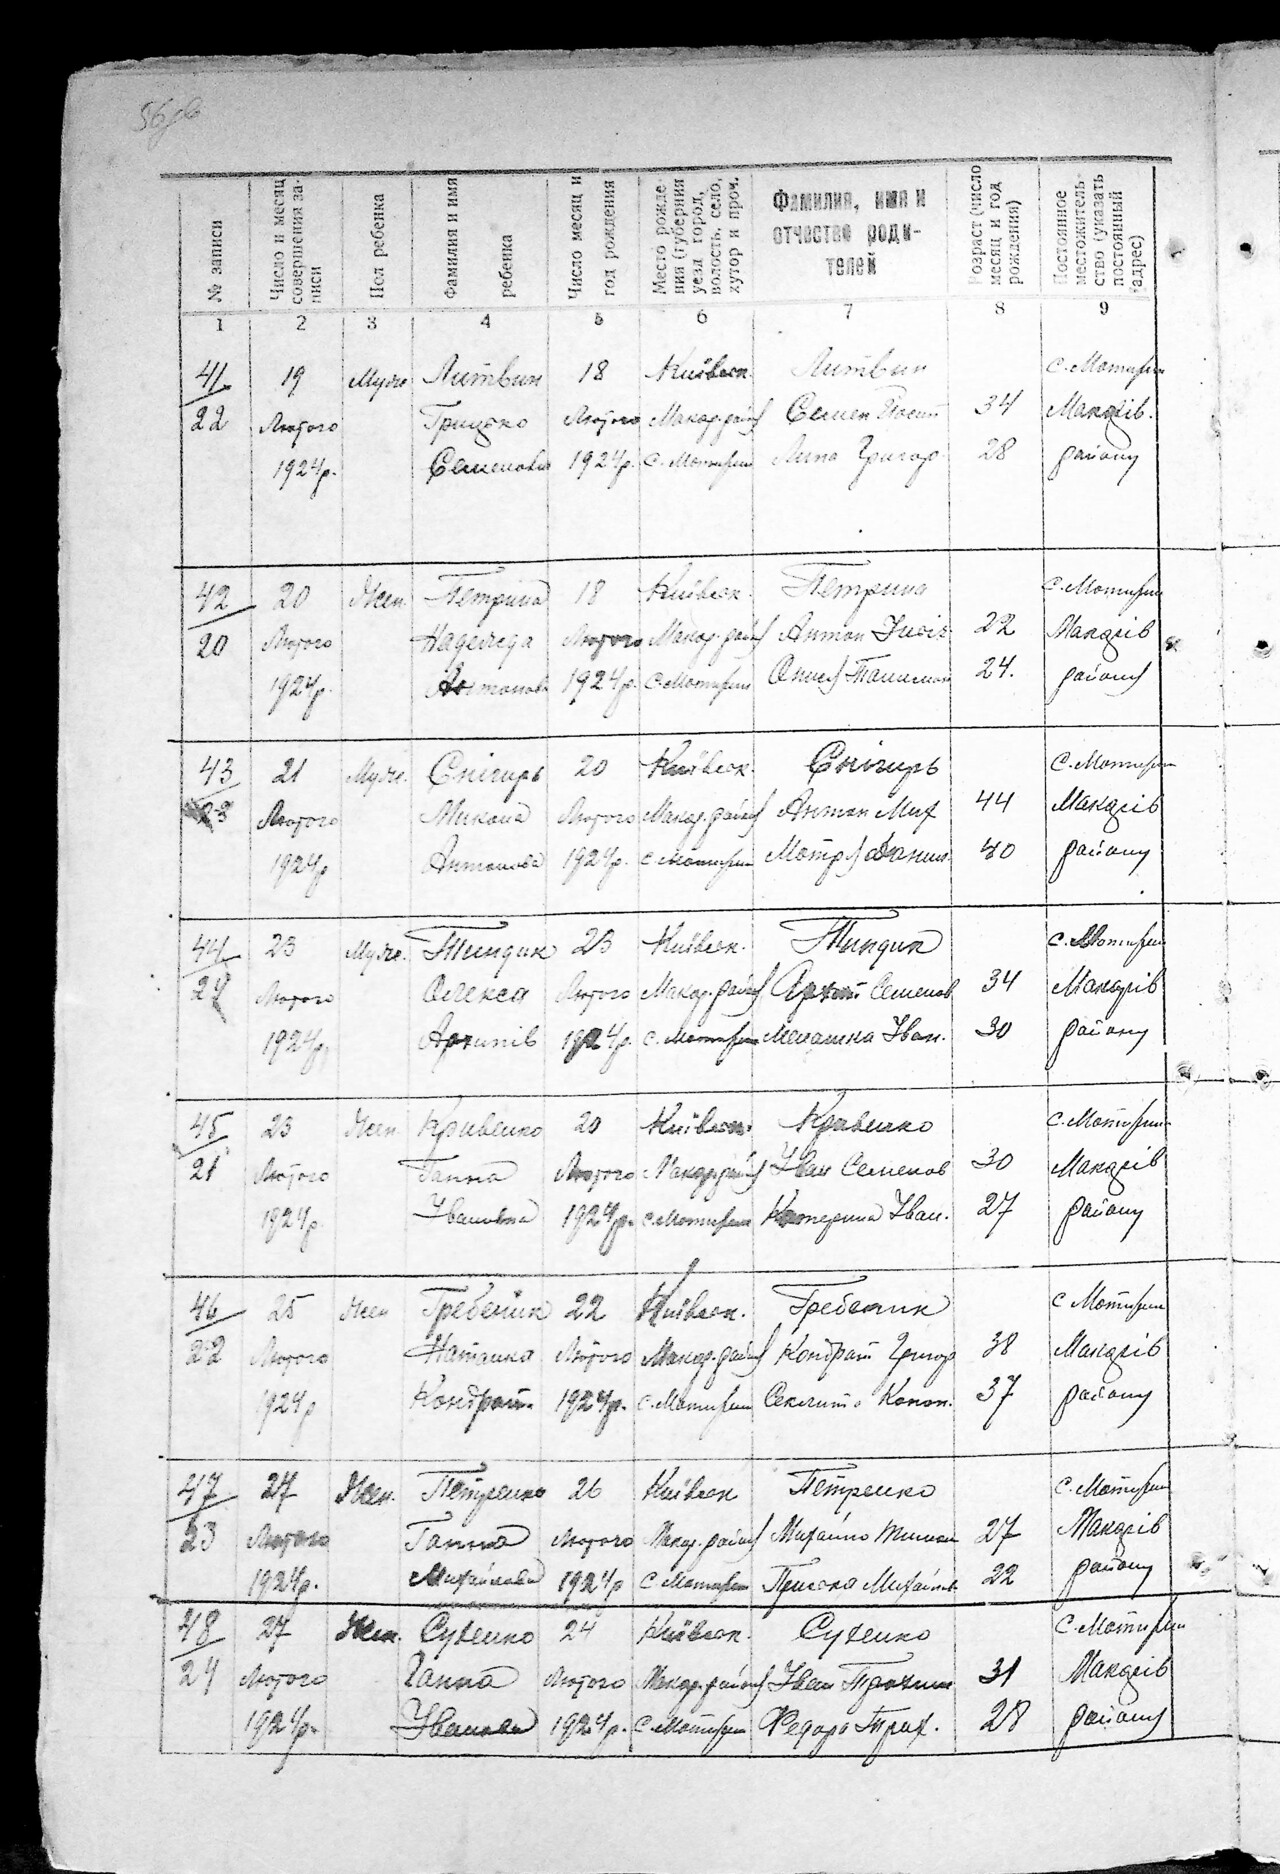 56 об
№ записи
Число и месяц совершения записи
Пол ребенка
Фамилия и имя ребенка
Число месяц и год рождения
Место рождения (губерния уезд город, волость, село, хутор и проч.
Фамилия, имя и отчество родителей
Возраст (число месяц и год рождения)
Постоянное местожительство (указать постоянный адрес)
1 2 3 4 5 6 7 8 9
41 19 Муж. Литвин 18 Київськ. Литвин с. Мотижин
22 Лютого Грицько Лютого Макар. район Семен 34 Макарів.
1924р. Семенович 1924р. с. Мотижин Григор. 28 району
42 20 Жен. Петрина 18 Київськ. Петрина с. Мотижин
20 Лютого Надежда Лютого Макар. район Антон 22 Макарів
1924р. Антонова 1924р. с. Мотижин 24. району
43 21 Муж. Снігирь 20 Київськ. Снігирь с. Мотижин
23 Лютого Микола Лютого Макар. район Антон Мих 44 Макарів
1924р Антонова 1924р. с. Мотижин Мотря Данил. 40 району
44 23 Муж. Тиндик 23 Київськ. Тиндик с. Мотижин
24 Лютого Олекса Лютого Макар. район Архип Семенов 34 Макарів
1924р. Архипів 1924р. с. Мотижин Мелашка Іван. 30 району
45 23 Жен. Кривенко 20 Київськ. Кривенко с. Мотижин
21 Лютого Ганна Лютого Макар. район Іван Семенов 30 Макарів
1924р. Івановна 1924р. с. Мотижин Катерина Іван. 27 району
46 25 Жен Гребеник 22 Київськ. Гребеник с Мотижин
22 Лютого Наталка Лютого Макар. район Кондрат Григор 38 Макарів
1924р Кондрат. 1924р. с. Мотижин Конон. 37 району
47 27 Жен. Петренко 26 Київськ Петренко с. Мотижин
23 Лютого Ганна Лютого Макар. район Михайло 27 Макарів
1924р. Михайлова 1924р с. Мотижин Михайлов. 22 району
48 27 Жен. Сутенко 24 Київськ. Сутенко с. Мотижин
24 Лютого Ганна Лютого Макар. район Іван 31 Макарів
1924р. Іванова 1924р. с. Мотижин Федора 28 району